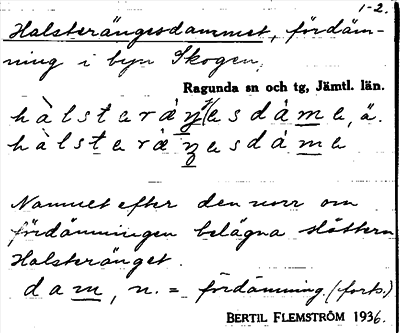 1-2.
Halsterängesdammet, fördäm-
ning i byn Skogen,
Ragunda sn och tg, Jämtl. län.
hàlsteräŋesdáme, ä.
hàlsteräŋesdáme
Namnet efter den norr om
fördämningen belägna slåttern
Halsteränget.
dam, n. = fördämning. (forts.)
BERTIL FLEMSTRÖM 1936.